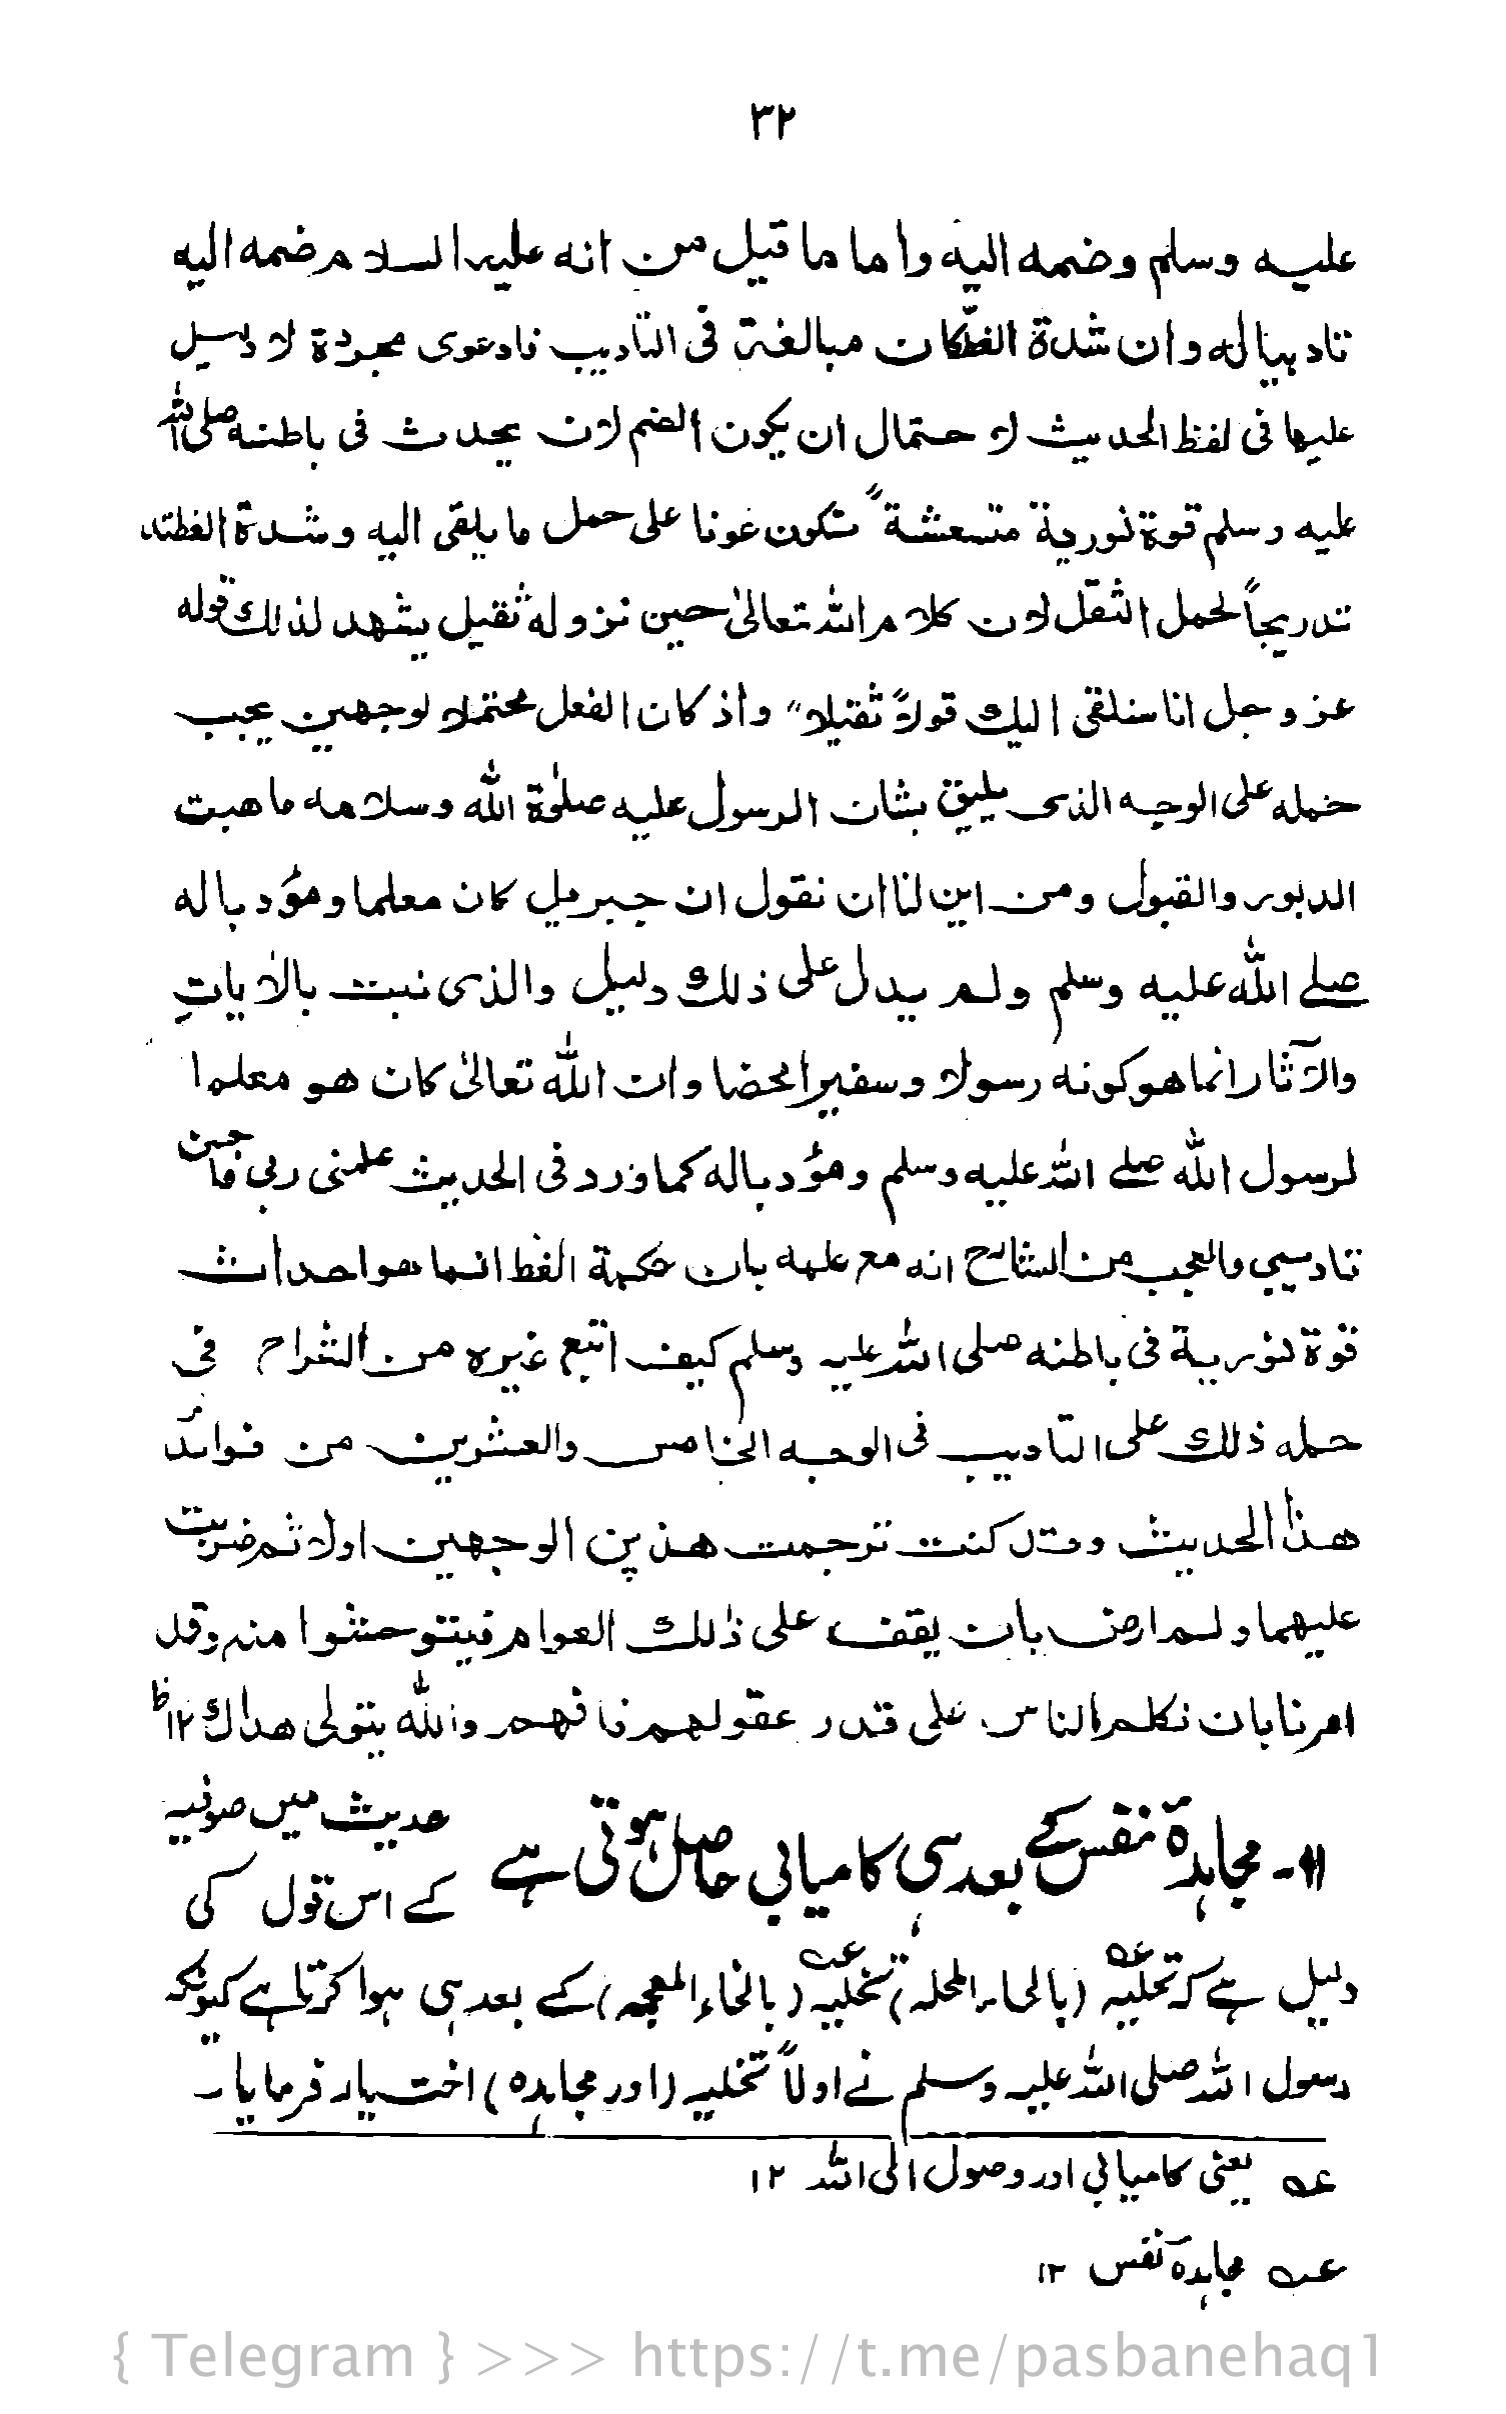 ٣٢
عليه وسلم وضمه اليه واما ما قيل من انه عليه السلام ضمه اليه
تاديبا له وان شدة الغط كان مبالغة فى التاديب فادعوى مجردة لا دليل
عليها فى لفظ الحديث لاحتمال ان يكون الضم لان يحدث فى باطنه صلى الله
عليه وسلم قوة نورية متسعشة تكون عونا على حمل ما يلقى اليه وشدة الغطته
تدريجاً لحمل الثقل لان كلام الله تعالىٰ حين نزوله ثقيل يشهد لذلك قوله
عز وجل انا سنلقى اليك قولاً ثقيلا" واذ كان الفعل محتملا لوجهين يجب
حمله على الوجه الذى يليق بشان الرسول عليه صلوٰة الله وسلامه ما هبت
الدبور والقبول ومن اين لنا ان نقول ان جبرئيل كان معلما ومؤدبا له
صلے الله عليه وسلم ولم يدل على ذلك دليل والذى ثبت بالاٰيات
والآثار انما هو كونه رسولا وسفيرا محضا وان الله تعالىٰ كان هو معلما
لرسول الله صلے الله عليه وسلم ومؤدبا له كما ورد فى الحديث علمنى ربى فاحسن
تاديبي والعجب من الشارح انه مع علمه بان حكمة الغط انما هو احداث
قوة نورية فى باطنه صلى الله عليه وسلم كيف اتبع غيره من الشراح فى
حمله ذلك على التاديب فى الوجه الخامس والعشرين من فوائد
هذا الحديث وقد كنت ترجمت هذين الوجهين اولا ثم ضربت
عليهما ولم ارض بان يقف على ذلك العوام فيتوحشوا منه وقد
امرنا بان نكلم الناس على قدر عقولهم فافهم والله يتولى هداك ١٢ ظ
١١۔ مجاہدۂ نفس کے بعد ہی کامیابی حاصل ہوتی ہے حدیث میں صوفیہ
کے اس قول کی
دلیل ہے کہ تحلیہ عہ (بالحاء المحلہ) تخلیہ عہ (بالخاء المعجمہ) کے بعد ہی ہوا کرتا ہے کیونکہ
رسول اللہ صلی اللہ علیہ وسلم نے اولاً تخلیہ (اور مجاہدہ) اختیار فرمایا۔
عہ یعنی کامیابی اور وصول الی اللہ ١٢
عہ مجاہدۂ نفس ١٢
{ Telegram } >>> https://t.me/pasbanehaq1